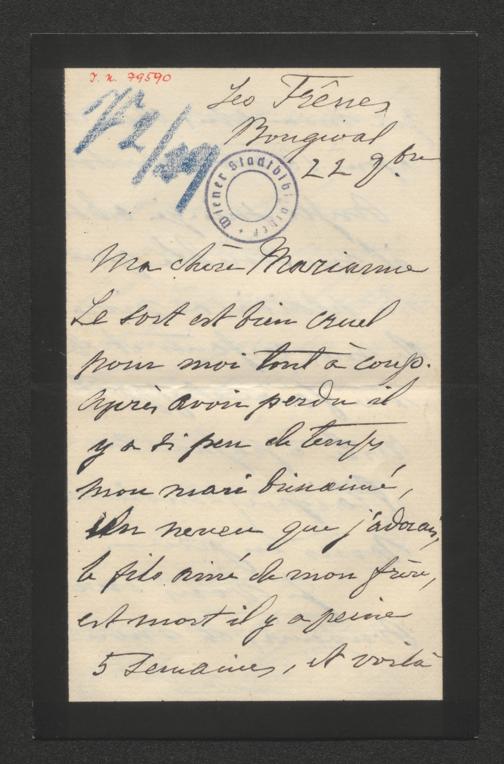 J. N. 79590
Les Frênes
Bougival
22 9bre
Wiener Stadtbibliothek
Ma chère Marianne
Le sort est bien cruel
pour moi tout à coup.
Après avoir perdu il
y a si peu de temps
mon mari bienaimé,
Un neveu que j'adorais,
le fils ainé de mon frère,
est mort il y a peine
5 semaines, et voilà